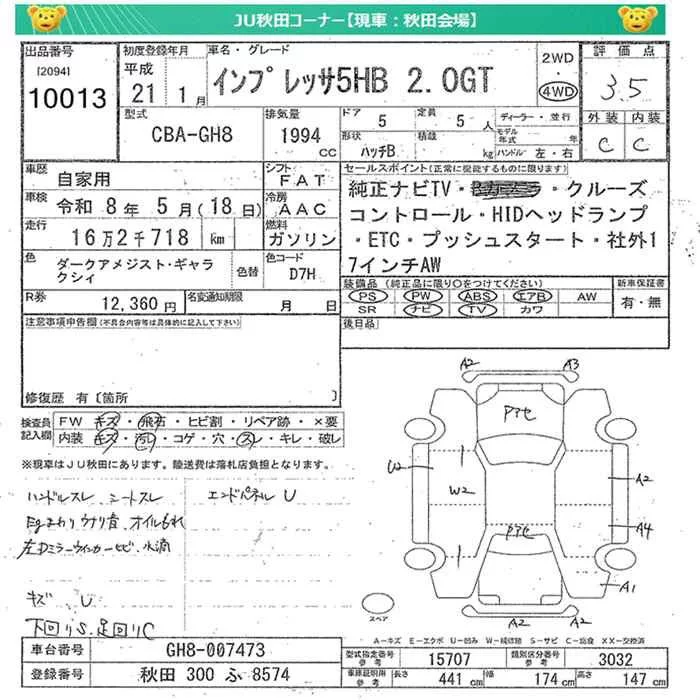 JU秋田コーナー【現車：秋田会場】
出品番号
[2094]
10013
初度登録年月
平成
21 1月
車名・グレード
インプレッサ5HB 2.0GT
2WD
・
4WD
評価点
3.5
外装 内装
C C
型式
CBA-GH8
排気量
1994
CC
ドア
5
定員
5 人
形状
ハッチB
積載
kg
ディーラー・並行
モデル年式 年
ハンドル 左・右
車歴
自家用
シフト
FAT
車検
令和 8年 5月(18日)
冷房
AAC
走行
16万2千718 km
燃料
ガソリン
色
ダークアメジスト・ギャラクシィ
色替
色コード
D7H
R券
12,360円
名変通知期限
月 日
セールスポイント(正常に機能するものに限ります)
純正ナビTV・・クルーズ
コントロール・HIDヘッドランプ
・ETC・プッシュスタート・社外1
7インチAW
装備品 (純正品に限り○をつけてください)
PS PW ABS エアB AW
SR ナビ TV カワ
新車保証書
有・無
後日品
注意事項申告欄(不具合内容等は具体的に記入して下さい)
修復歴 有〔箇所 〕
検査員記入欄
FW キズ・飛石・ヒビ割・リペア跡・×要
内装 キズ・汚レ・コゲ・穴・スレ・キレ・破レ
※現車はJU秋田にあります。陸送費は落札店負担となります。
ハンドルスレ シートスレ
Egまわりウナリ音、オイルもれ
左Dミラーウィンカーヒビ・水滴
キズ U
下回りS.足回りC
エンドパネル U
A2 A3
Pアセ
U2
W2
A2
Pアセ
A4
A1
A2 A2
スペア
A－キズ E－エクボ U－凹み W－補修跡 S－サビ C－腐食 XX－交換済
車台番号
GH8-007473
登録番号
秋田 300 ふ 8574
型式指定番号
参考
15707
類別区分番号
参考
3032
車庫証明用
参考
長さ 441 cm
幅 174 cm
高さ 147 cm